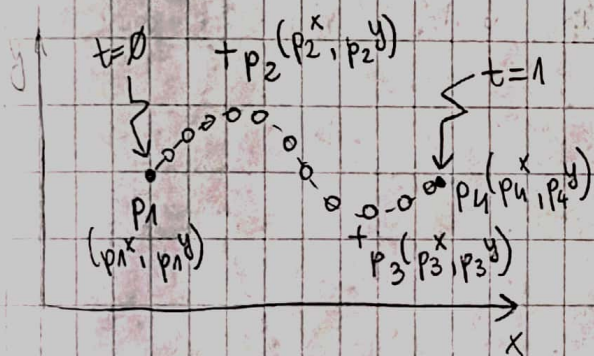 y
t=Ø
+ p2 (p2^x, p2^y)
t=1
p1
(p1^x, p1^y)
p4 (p4^x, p4^y)
+ p3 (p3^x, p3^y)
x